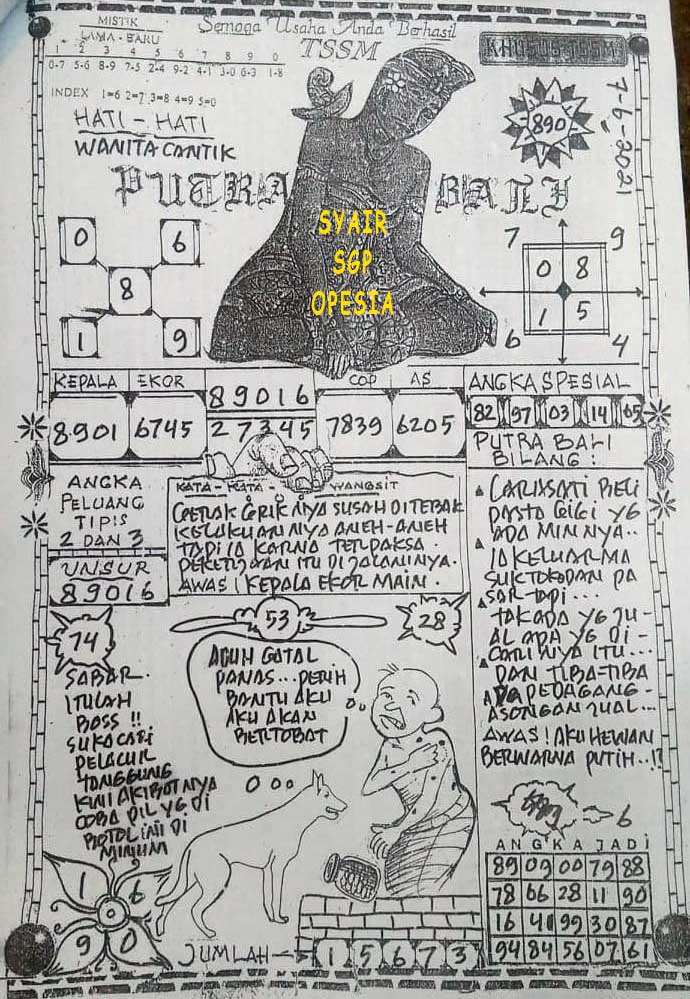 MISTIK
LAMA - BARU
1 2 3 4 5 6 7 8 9 0
0-7 5-6 8-9 7-5 2-4 9-2 4-1 3-0 6-3 1-8
INDEX 1=6 2=7 3=8 4=9 5=0
Semoga Usaha Anda Berhasil
TSSM
KHUSUS TSSM
7-6-2021
890
HATI - HATI
WANITA CANTIK
PUTRA BALI
SYAIR
SGP
OPESIA
0 6
8
1 9
7 9
0 8
1 5
6 4
KEPALA EKOR
8901 6745
89016
27345
COP AS
7839 6205
ANGKA SPESIAL
82 97 03 14 65
ANGKA
PELUANG
TIPIS
2 DAN 3
UNSUR
89016
KATA - KATA - WANGSIT
GERAK GERIK NYA SUSAH DITEBAK
KELAKUAN NYA ANEH-ANEH
TAPI IA KARNA TERPAKSA.
PEKERJAAN ITU DI JALANINYA.
AWAS! KEPALA EKOR MAIN.
PUTRA BALI
BILANG :
CARIKSATI BELI
PASTA GIGI YG
ADA MIN NYA..
IA KELUAR MA
SUK TOKO DAN PA
SAR TAPI...
TAK ADA YG JU-
AL ADA YG DI-
CARI NYA ITU...
DAN TIBA-TIBA
ADA PEDAGANG-
ASONGAN JUAL...
AWAS! AKU HEWAN
BERWARNA PUTIH..!?
74
53
28
SABAR.
ITULAH
BOSS !!
SUKA CARI
PELACUR
TANGGUNG
KINI AKIBATNYA
COBA PIL YG DI
BOTOL INI DI
MINUM
ADUH GATAL
PANAS... PERIH
BANTU AKU
AKU AKAN
BERTOBAT
1 6
9 0
JUMLAH
1 5 6 7 3
6
ANGKA JADI
89 09 00 79 88
78 66 28 11 90
16 41 99 30 87
94 84 56 07 61